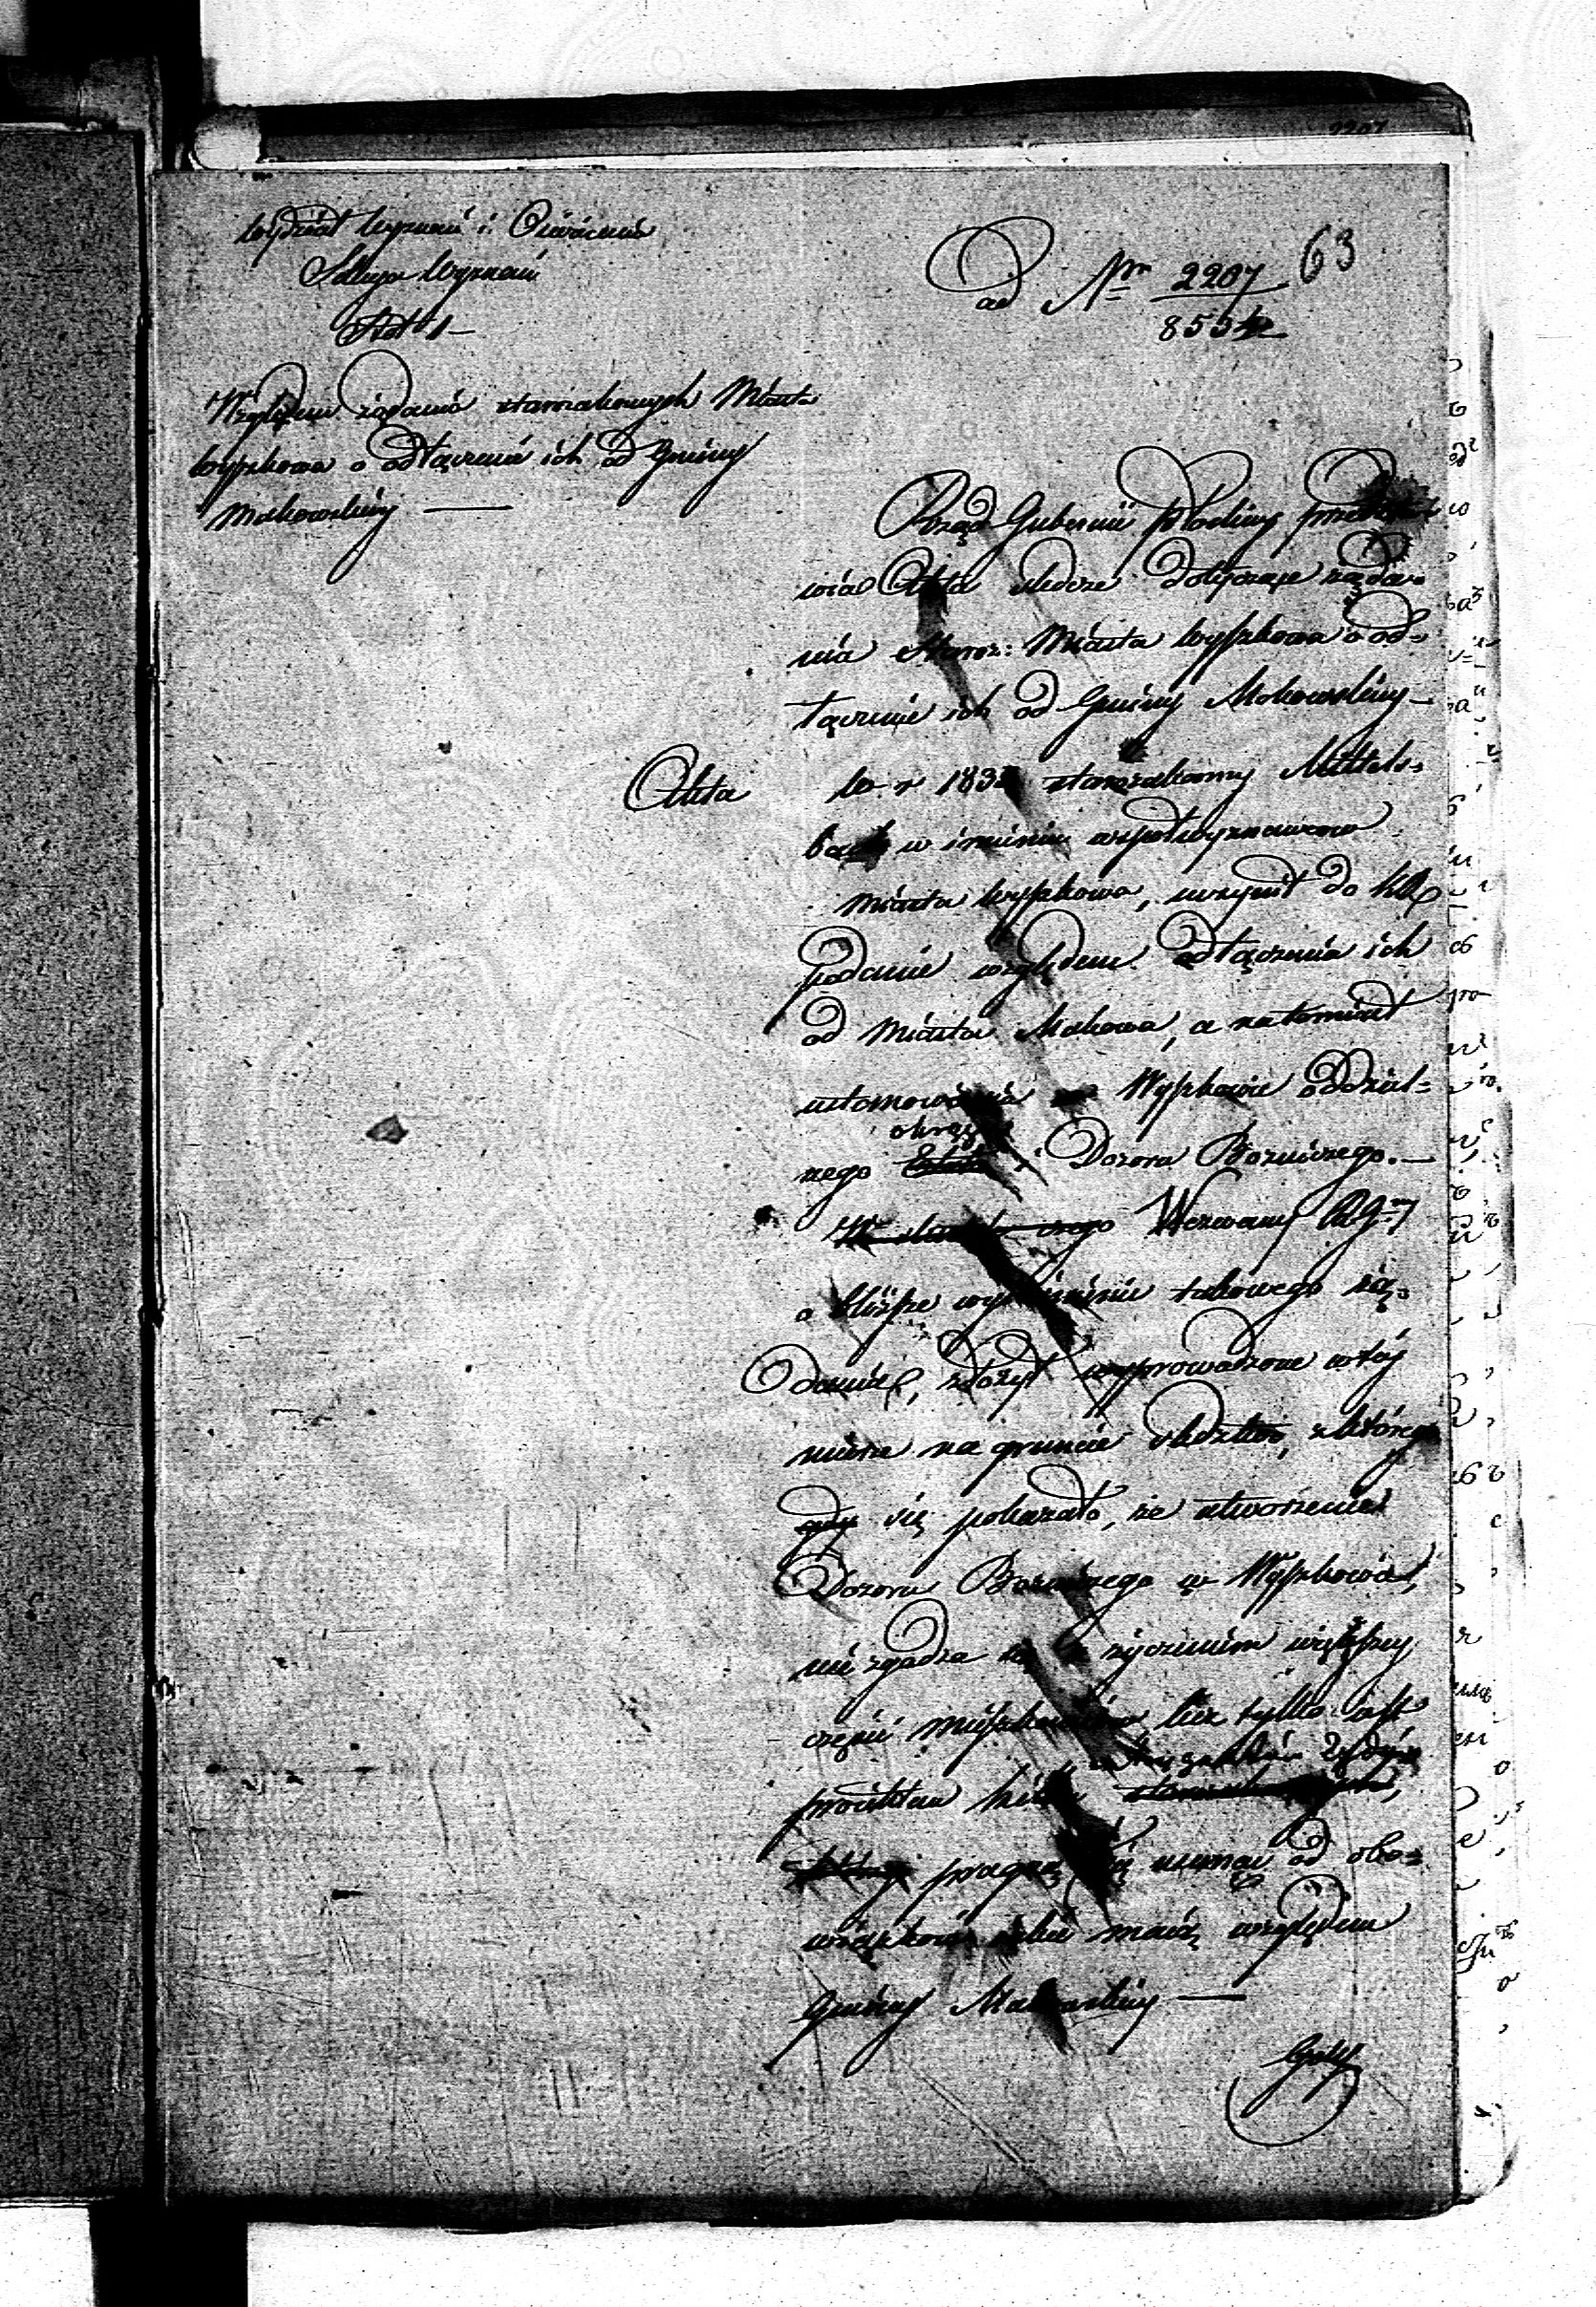 Wydział Wyznań i Oświecenia
Sekcya Wyznań
63
ad Nm 2207
8554
Względem żądania starozakonnych Miasta
Wyszkowa o odłączenie ich od Gminy
Makowskiey —
Rząd Gubernii Płockiey
wia Akta śledcze dotyczące żąda-
nia Staroz: Miasta Wyszkowa o od-
łączenie ich od Gminy Makowskiey —
Akta
W r 183 starozakonny Mittels-
bach w imieniu współwyznawców
miasta Wyszkowa, uczynił do KR
podanie względem odłączenia ich
od Miasta Makowa, a natomiast
ustanowienia w Wyszkowie oddziel-
okręgu
nego i Dozoru Bożniczego. —
Wezwany RG
o bliższe wyjaśnienie takowego żą-
dania, złożył wyprowadzone w téj
mierze na gruncie śledztwo, z którego
gdy się pokazało, że utworzenie
Dozoru Bożniczego w Wyszkowie,
nie zgadza się z życzeniem większey
części mieszkańców lecz tylko jest
żydów
proiektem kilku
pragną się usunąć od obo-
wiązków jakie maią względem
Gminy Makowskiey —